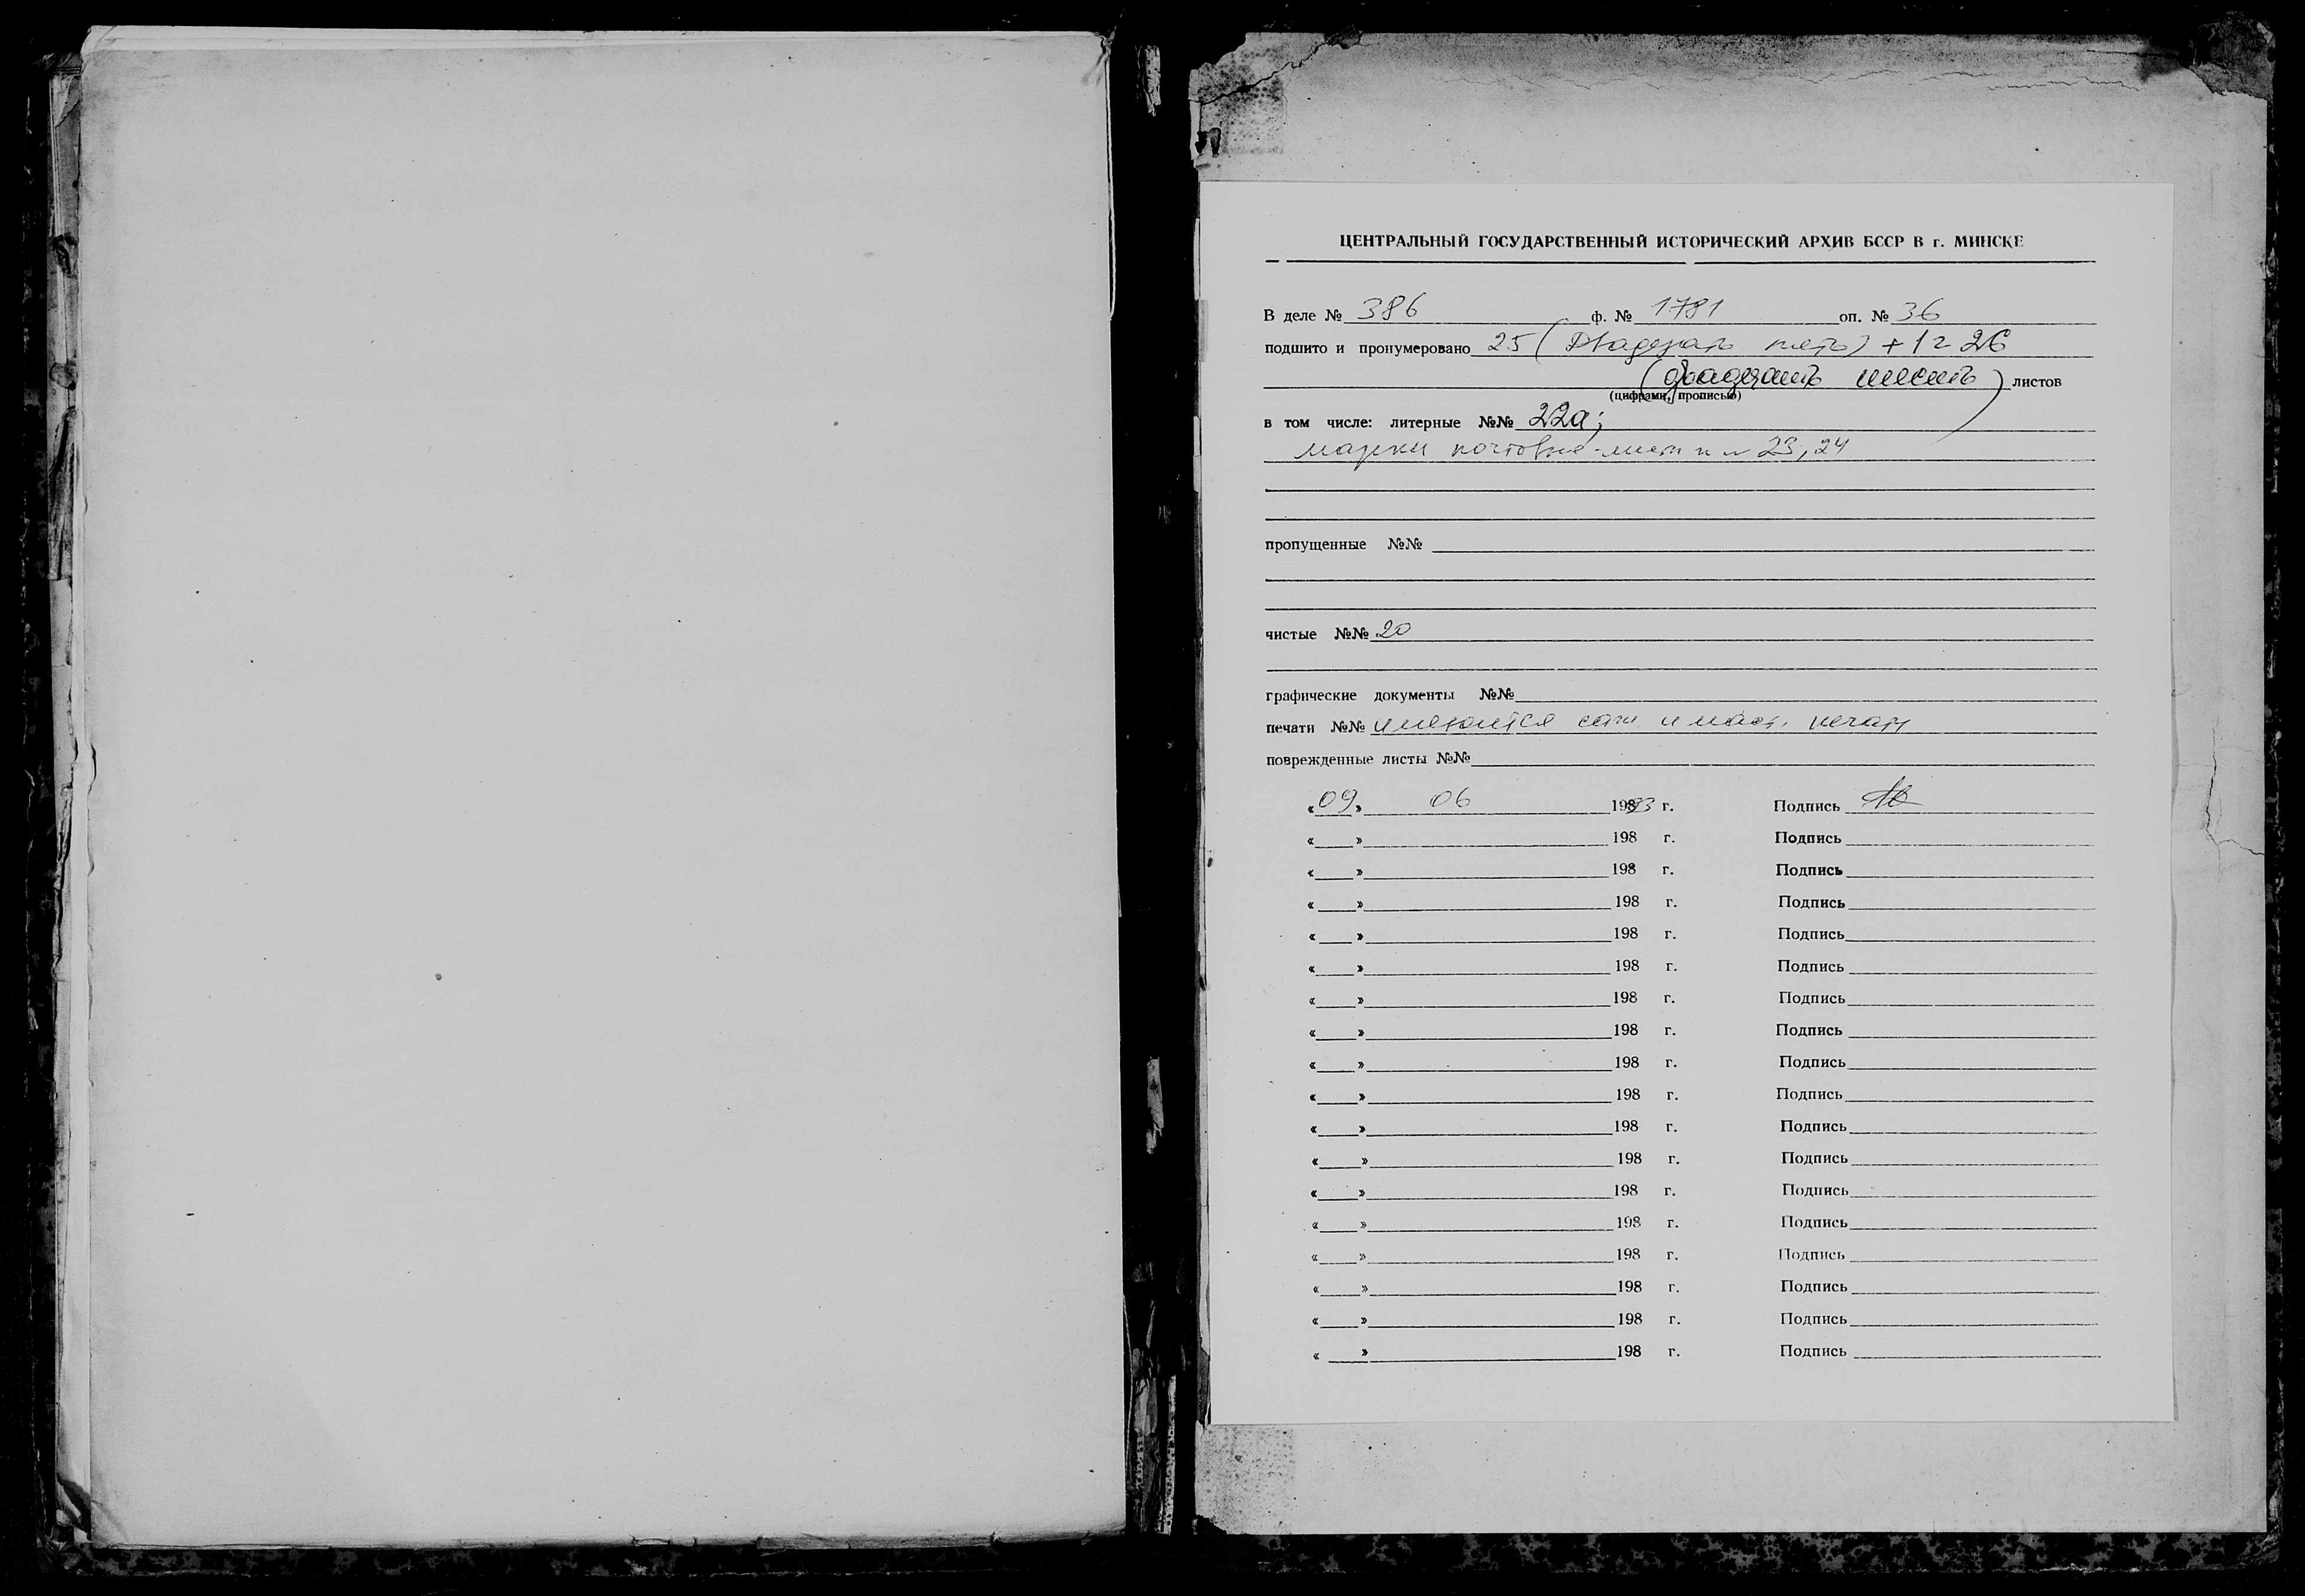 ЦЕНТРАЛЬНЫЙ ГОСУДАРСТВЕННЫЙ ИСТОРИЧЕСКИЙ АРХИВ БССР В г. МИНСКЕ
В деле № 386 ф. № 1781 оп. № 36
подшито и пронумеровано 25 (Двадцать пять) + 1 = 26
(двадцать шесть) листов
(цифрами, прописью)
в том числе: литерные №№ 22а;
марки почтовые - 23, 24
пропущенные №№
чистые №№ 20
графические документы №№
печати №№ имеются и маст. печати
поврежденные листы №№
«09» 06 1993 г. Подпись
« » 198 г. Подпись
« » 198 г. Подпись
« » 198 г. Подпись
« » 198 г. Подпись
« » 198 г. Подпись
« » 198 г. Подпись
« » 198 г. Подпись
« » 198 г. Подпись
« » 198 г. Подпись
« » 198 г. Подпись
« » 198 г. Подпись
« » 198 г. Подпись
« » 198 г. Подпись
« » 198 г. Подпись
« » 198 г. Подпись
« » 198 г. Подпись
« » 198 г. Подпись